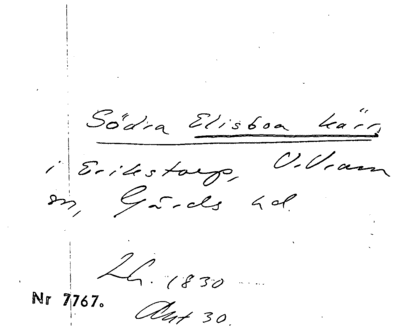 Södra Elisboa kärr,
i Erikstorp, V. Vram
sn, Gärds hd.
Lh. 1830
Nr 7767.
Akt 30.